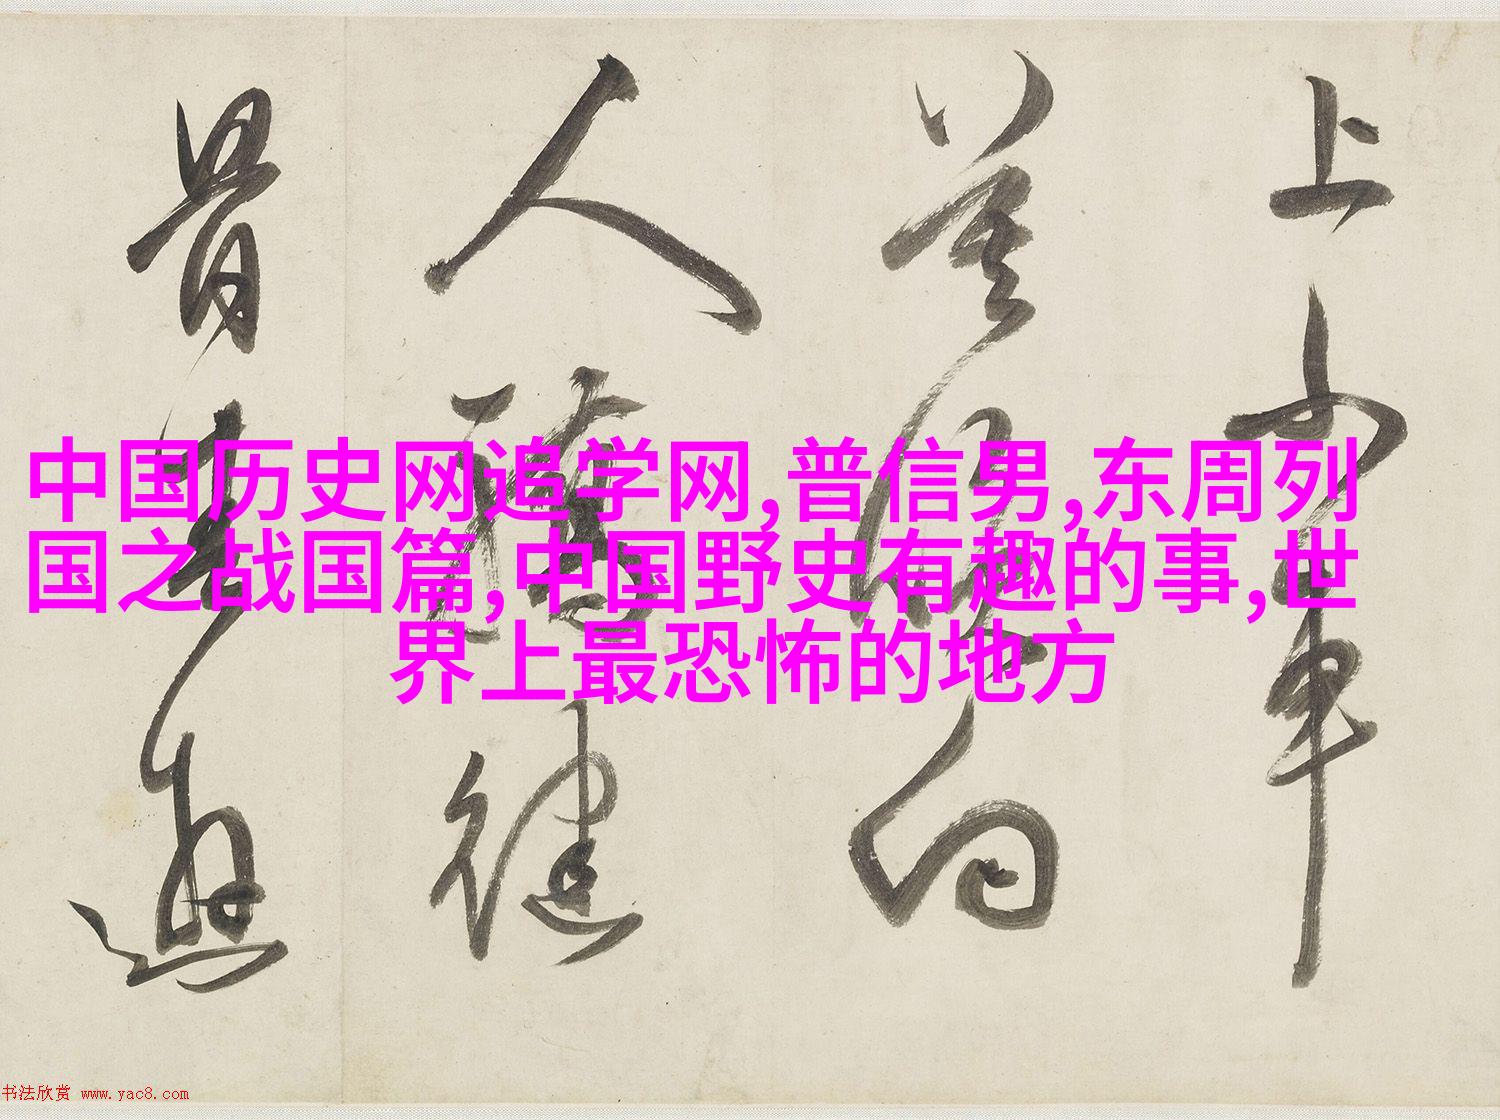 中国历史网追学网,普信男,东周列
国之战国篇,中国野史有趣的事,世
界上最恐怖的地方
上 車
向
人
骨
书法欣赏 www.yac8.com